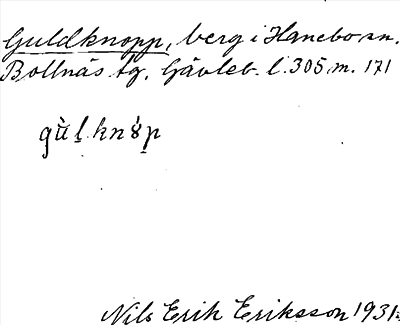 Guldknopp, berg i Hanebo sn.
Bollnäs tg. Gävleb. l. 305 m. 171
gu̇̀l knȯ́p
Nils Erik Eriksson 1931.